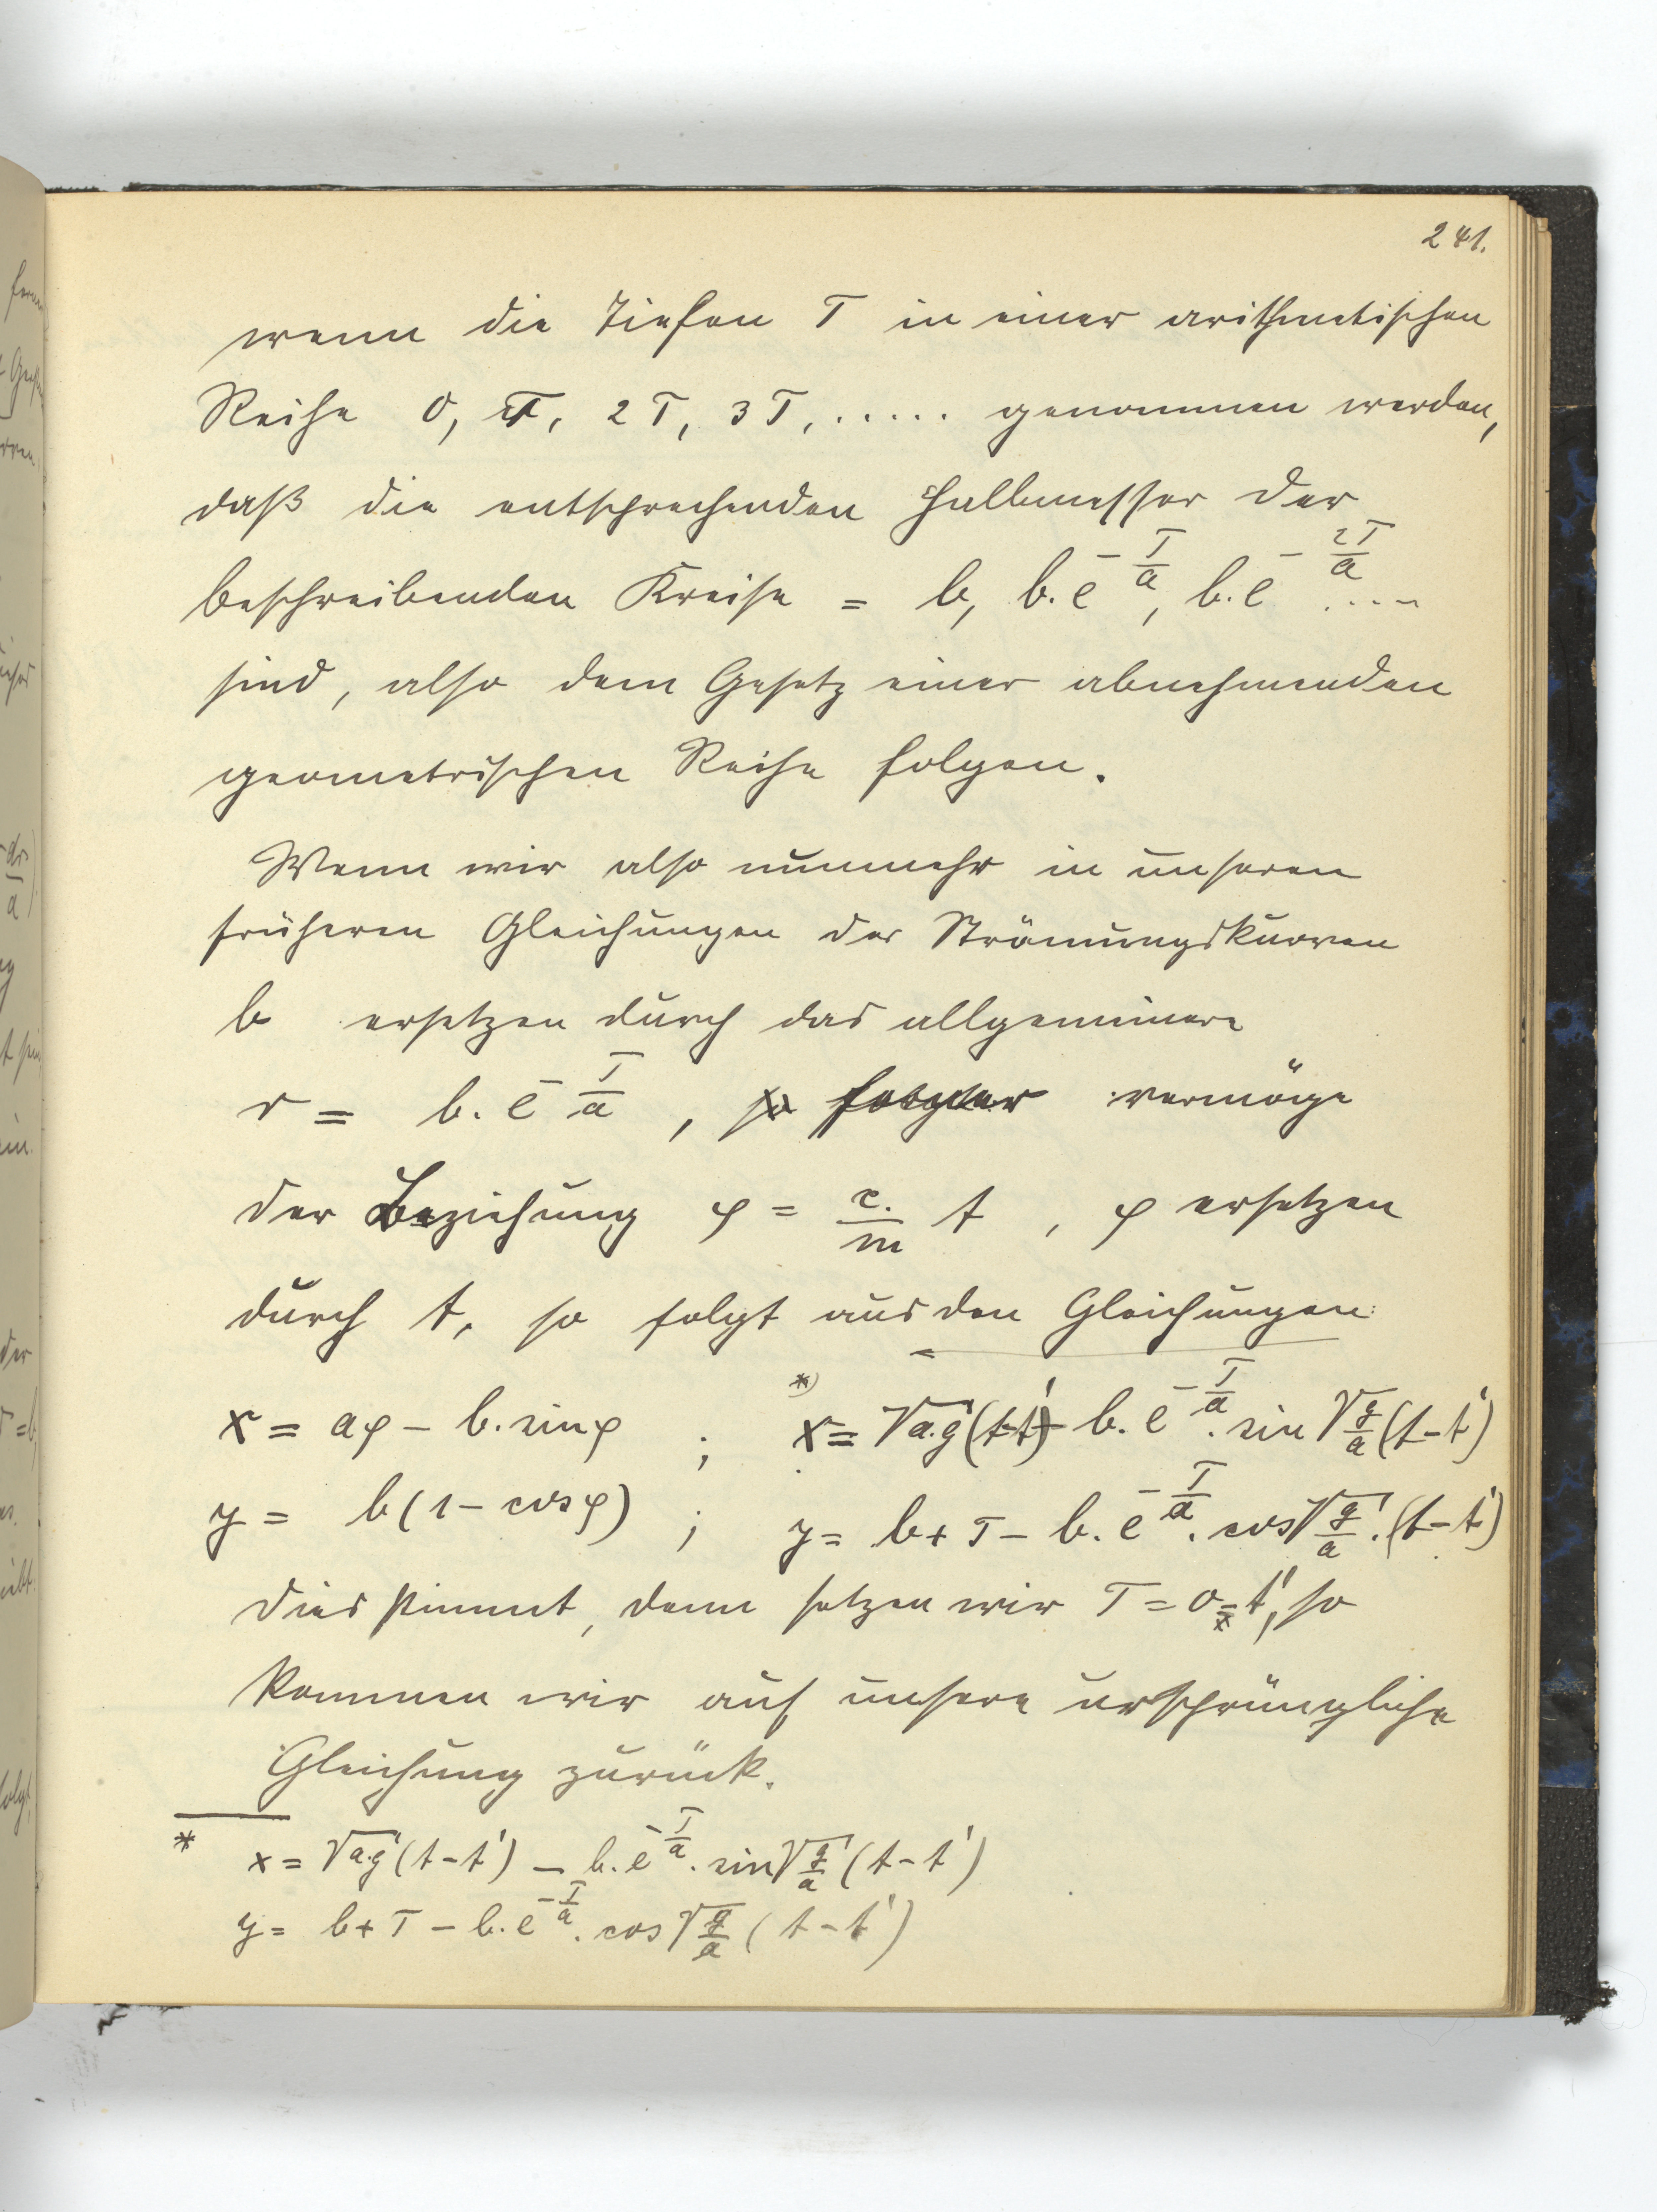 241.
wenn die Tiefen T in einer arithmetischen
Reihe 0, T, 2T, 3T, ..... genommen werden,
daß die entsprechenden Halbmesser der
beschreibenden Kreise = b, b.e^{-T/a}, b.e^{-2T/a} ....
sind, also dem Gesetz einer abnehmenden
geometrischen Reihe folgen.
Wenn wir also nunmehr in unseren
früheren Gleichungen der Strömungskurven
b ersetzen durch das allgemeinere
r = b.e^{-T/a}, vermöge
der Beziehung φ = c./m t, φ ersetzen
durch t, so folgt aus den Gleichungen:
x = aφ - b.sinφ ; *) x = √a.g (t-t') - b.e^{-T/a}.sin √g/a (t-t')
y = b(1-cosφ) ; y = b+T - b.e^{-T/a}.cos √g/a.(t-t')
dies stimmt, denn setzen wir T = 0 = t', so
kommen wir auf unsere ursprüngliche
Gleichung zurück.
* x = √a.g (t-t') - b.e^{-T/a}.sin √g/a (t-t')
y = b+T - b.e^{-T/a}.cos √g/a (t-t')